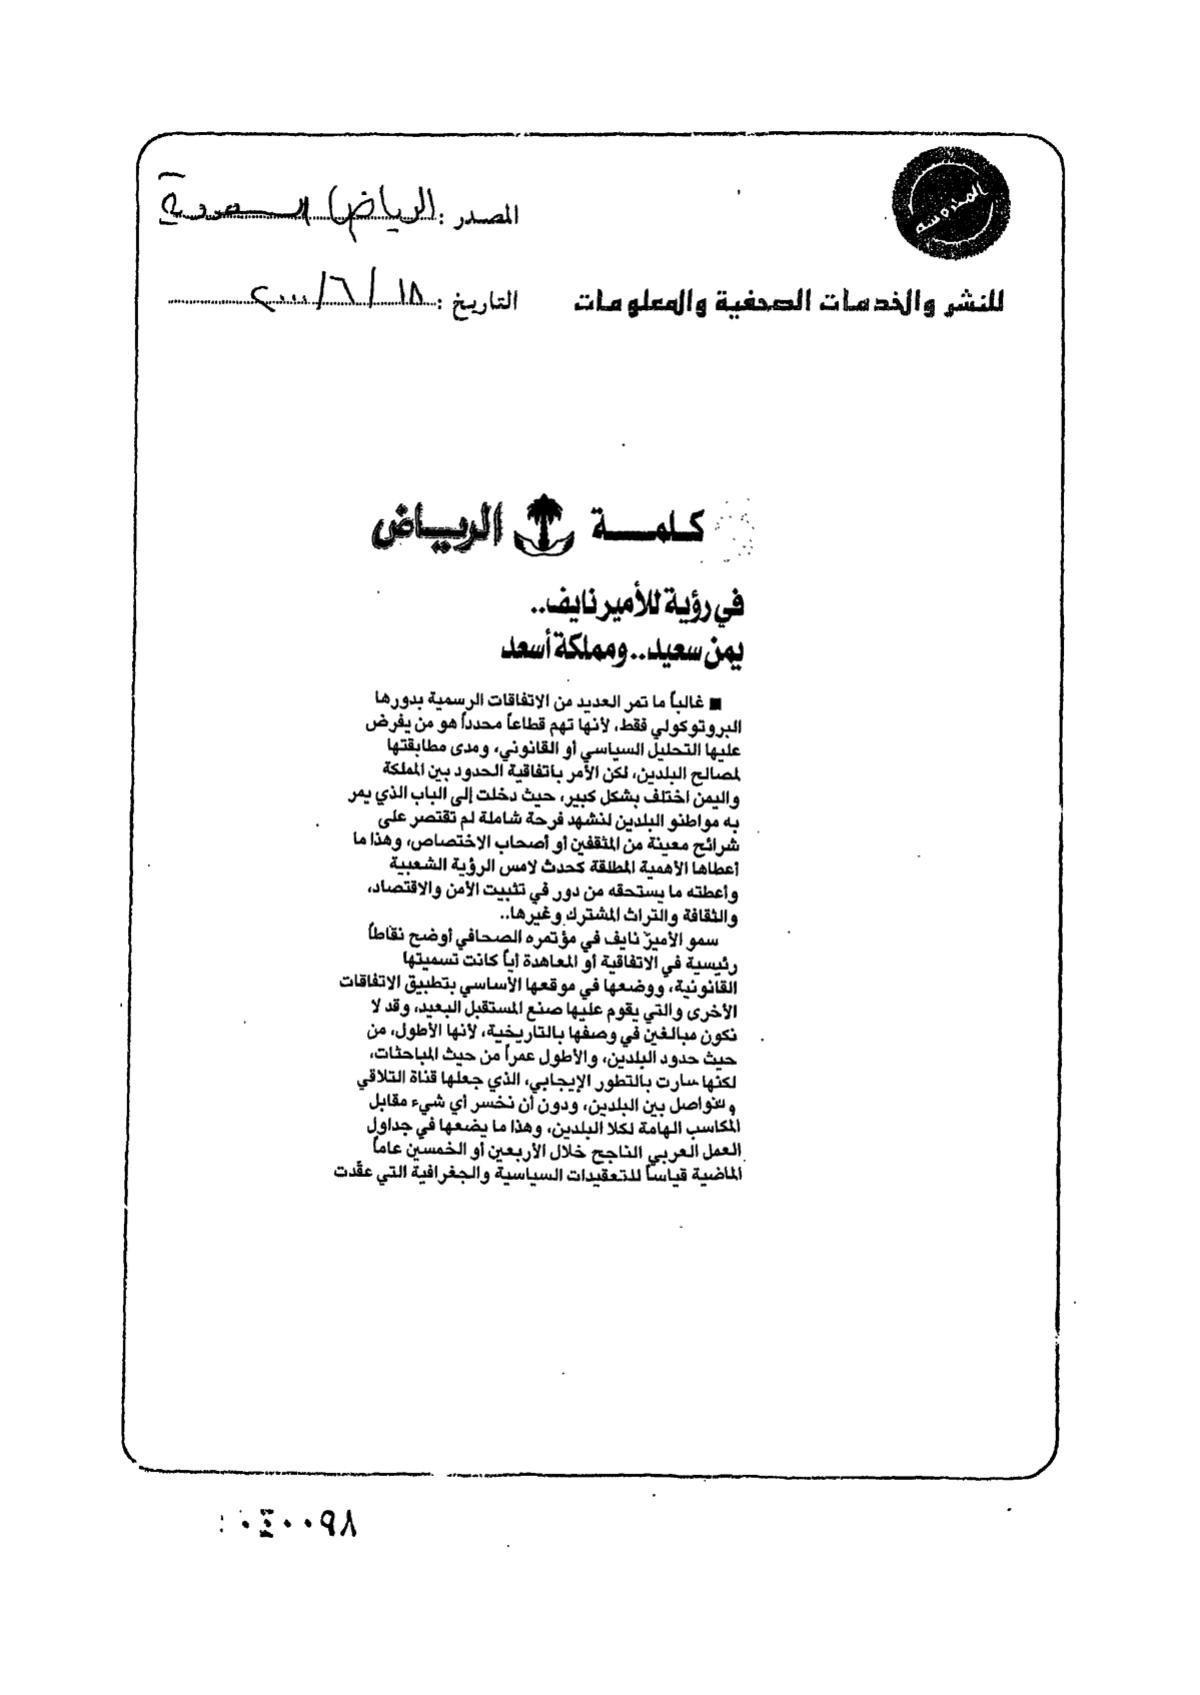 المصدر : الرياض السعودية
التاريخ : ١٨ / ٦ / ٢٠٠٠
للنشر والخدمات الصحفية والمعلومات
كلمـــة الرياض
في رؤية للأمير نايف..
يمن سعيد.. ومملكة أسعد
■ غالباً ما تمر العديد من الاتفاقات الرسمية بدورها
البروتوكولي فقط، لأنها تهم قطاعاً محدداً هو من يفرض
عليها التحليل السياسي أو القانوني، ومدى مطابقتها
لمصالح البلدين، لكن الأمر باتفاقية الحدود بين المملكة
واليمن اختلف بشكل كبير، حيث دخلت إلى الباب الذي يمر
به مواطنو البلدين لنشهد فرحة شاملة لم تقتصر على
شرائح معينة من المثقفين أو أصحاب الاختصاص، وهذا ما
أعطاها الأهمية المطلقة كحدث لامس الرؤية الشعبية
وأعطته ما يستحقه من دور في تثبيت الأمن والاقتصاد،
والثقافة والتراث المشترك وغيرها..
سمو الأمير نايف في مؤتمره الصحافي أوضح نقاطاً
رئيسية في الاتفاقية أو المعاهدة أياً كانت تسميتها
القانونية، ووضعها في موقعها الأساسي بتطبيق الاتفاقات
الأخرى والتي يقوم عليها صنع المستقبل البعيد، وقد لا
نكون مبالغين في وصفها بالتاريخية، لأنها الأطول، من
حيث حدود البلدين، والأطول عمراً من حيث المباحثات،
لكنها سارت بالتطور الإيجابي، الذي جعلها قناة التلاقي
والتواصل بين البلدين، ودون أن نخسر أي شيء مقابل
المكاسب الهامة لكلا البلدين، وهذا ما يضعها في جداول
العمل العربي الناجح خلال الأربعين أو الخمسين عاماً
الماضية قياساً للتعقيدات السياسية والجغرافية التي عقّدت